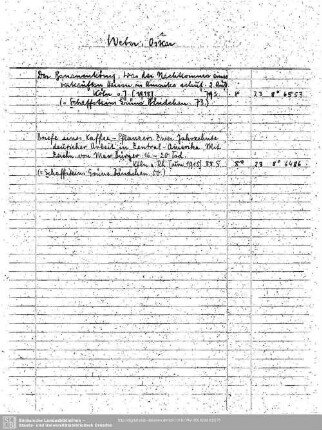 Weber, Oskar
Der Bananenkönig. Was der Nachkomme eines
verkauften Hessen in Amerika schuf. 2. Aufl.
Köln o. J. (1918) 79 S. 8° 23 8° 6553
(= Schaffsteins Grüne Bändchen. 73.)
Briefe eines Kaffee-Pflanzers. Zwei Jahrzehnte
deutscher Arbeit in Zentral-Amerika. Mit
Zeichn. von Max Bürger. 16.-20. Tsd.
Köln a. Rh. [um 1918] 88 S. 8° 23 8° 6486
(= Schaffsteins Grüne Bändchen.
Sächsische Landesbibliothek -
Staats- und Universitätsbibliothek Dresden